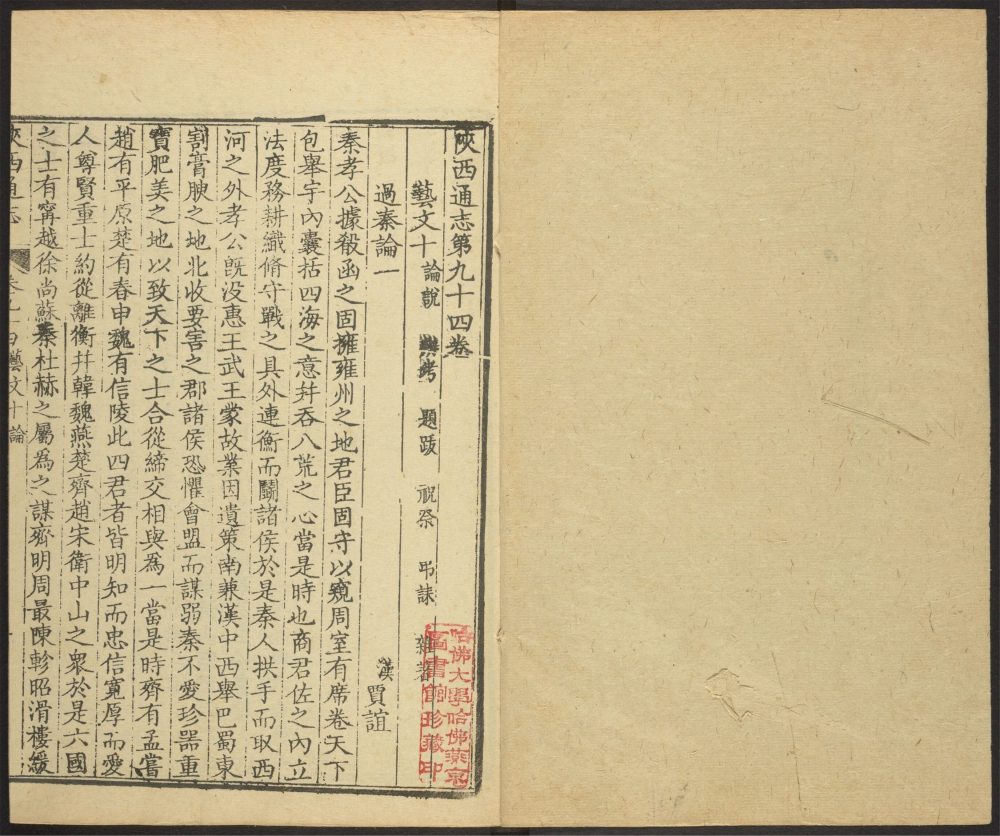 陝西通志第九十四卷
藝文十 論說 辨考 題跋 祝祭 弔誄 雜著
過秦論一
漢 賈誼
秦孝公據殽函之固擁雍州之地君臣固守以窺周室有席卷天下
包舉宇內囊括四海之意并吞八荒之心當是時也商君佐之內立
法度務耕織脩守戰之具外連衡而鬭諸侯於是秦人拱手而取西
河之外孝公旣沒惠王武王蒙故業因遺策南兼漢中西舉巴蜀東
割膏腴之地北收要害之郡諸侯恐懼會盟而謀弱秦不愛珍器重
寶肥美之地以致天下之士合從締交相與爲一當是時齊有孟嘗
趙有平原楚有春申魏有信陵此四君者皆明知而忠信寬厚而愛
人尊賢重士約從離衡并韓魏燕楚齊趙宋衛中山之衆於是六國
之士有甯越徐尚蘇秦杜赫之屬爲之謀齊明周最陳軫昭滑樓緩
陝西通志 卷九十四藝文十論
哈佛大學哈佛燕京
圖書館珍藏印